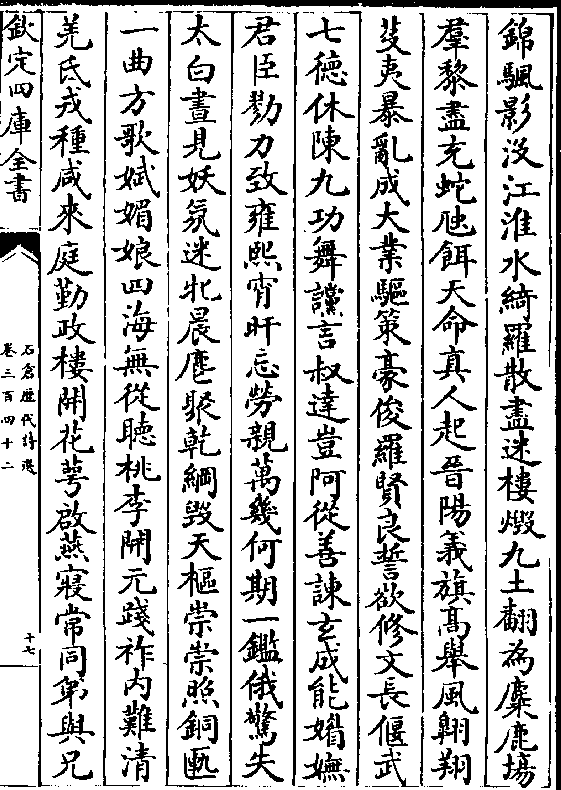 錦颿影没江淮水綺羅散盡迷樓燬九土翻為麋鹿場
羣黎盡充蛇虺餌天命真人起晉陽義旗髙舉風翺翔
芟夷暴亂成大業驅策豪俊羅賢良誓欲修文長偃武
七徳休陳九功舞讜言叔達豈阿從善諫玄成能媚嫵
君臣勠力致雍熙宵旰忘勞親萬幾何期一鑑俄驚失
太白晝見妖氛迷牝晨麀聚乾綱毁天樞崇崇照銅匭
一曲方歌娬媚娘四海無從聴桃李開元踐祚内難清
羌氐戎種咸來庭勤政樓開花萼啟燕寢常同弟與兄
欽定四庫全書
石倉歴代詩選
卷三百四十二
十七